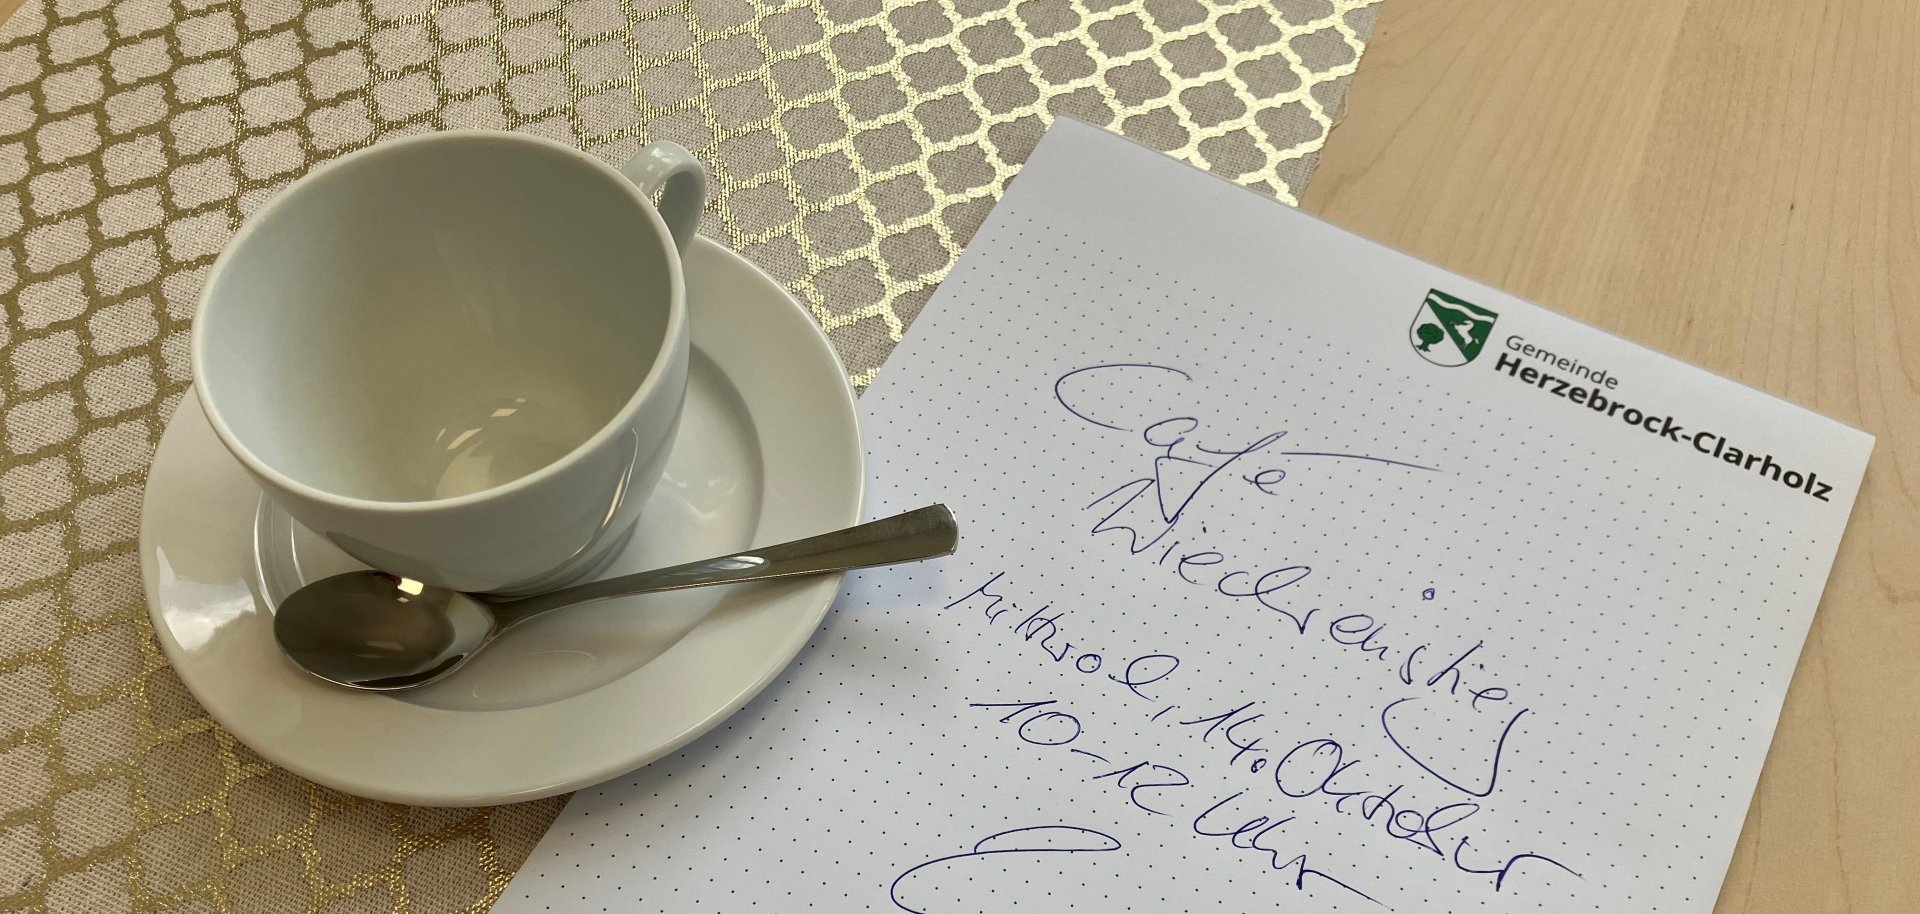 Gemeinde
Herzebrock-Clarholz
Café
Wiedereinstieg
Mittwoch, 14. Oktober
10-12 Uhr